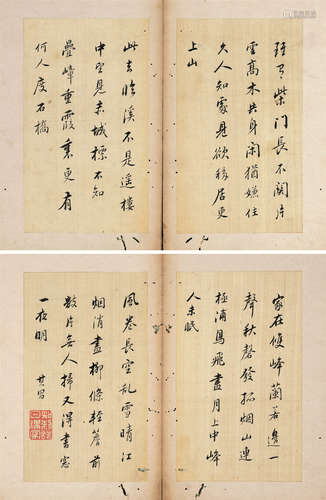 柴門長不関片
雲高木共身閑猶嫌住
久人知處見欲移居更
上山
此去臨溪不是遥樓
中望見赤城標不知
疊嶂重霞裏更有
何人度石橋
家在雙峰蘭若邊一
聲秋磬發孤烟山連
極浦鳥飛盡月上中峰
人未眠
風卷長空亂雪晴江
烟消盡柳條輕簷前
數片無人掃又得書窓
一夜明 其昌